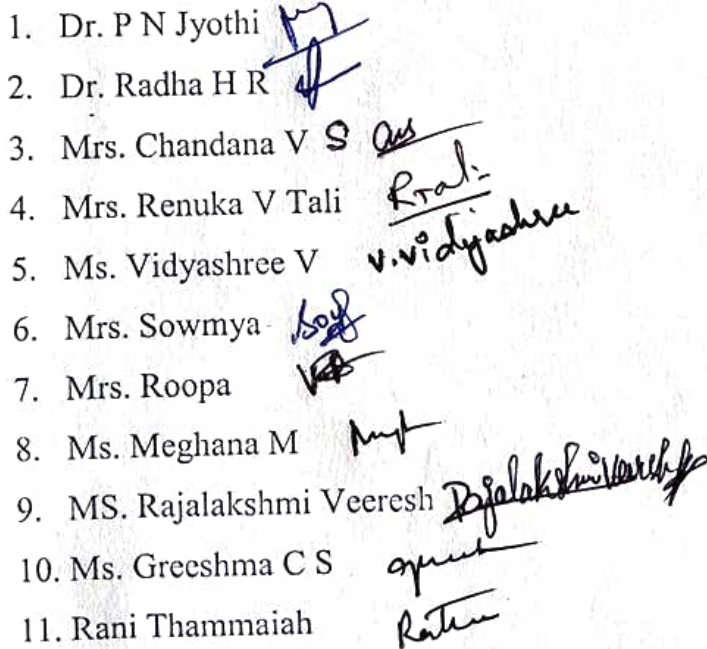 1. Dr. P N Jyothi
2. Dr. Radha H R
3. Mrs. Chandana V S
4. Mrs. Renuka V Tali R Tali
5. Ms. Vidyashree V V. Vidyashree
6. Mrs. Sowmya
7. Mrs. Roopa
8. Ms. Meghana M
9. MS. Rajalakshmi Veeresh Rajalakshmi Veeresh
10. Ms. Greeshma C S
11. Rani Thammaiah